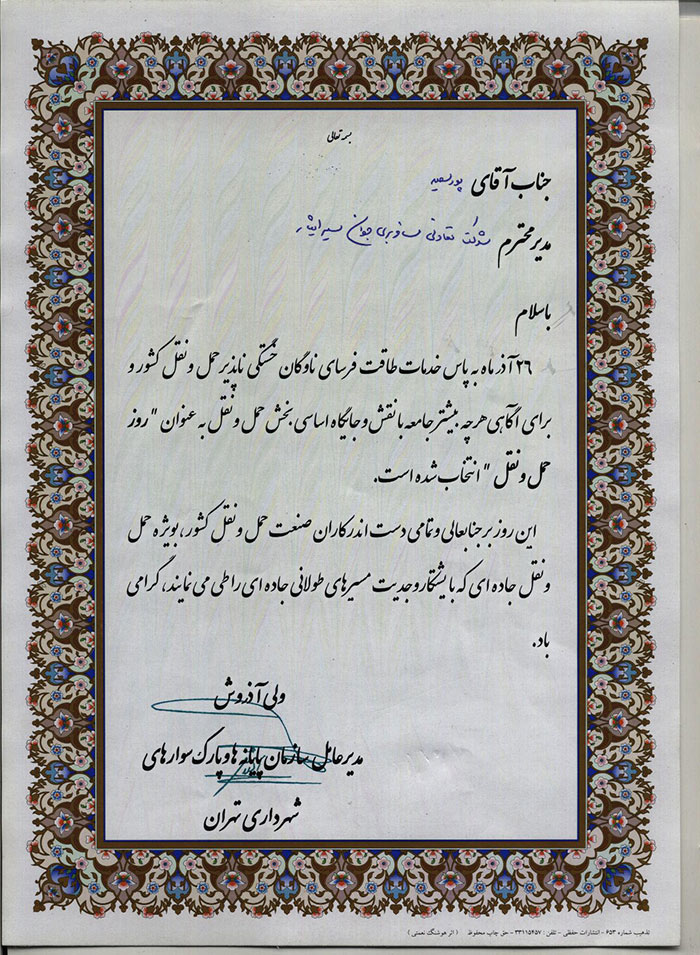 بسمه تعالی
جناب آقای پورسعید
مدیر محترم شرکت تعاونی مسافربری جوان سیر ایثار
باسلام
۲۶ آذر ماه به پاس خدمات طاقت فرسای ناوگان خستگی ناپذیر حمل و نقل کشور و
برای آگاهی هرچه بیشتر جامعه با نقش و جایگاه اساسی بخش حمل و نقل به عنوان "روز
حمل و نقل" انتخاب شده است.
این روز بر جنابعالی و تمامی دست اندرکاران صنعت حمل و نقل کشور، بویژه حمل
و نقل جاده ای که با پشتکار و جدیت مسیرهای طولانی جاده ای را طی می نمایند، گرامی
باد.
ولی آذروش
مدیرعامل سازمان پایانه ها و پارک سوارهای
شهرداری تهران
تذهیب شماره ۶۵۳ - انتشارات حفظی - تلفن : ۳۳۱۱۵۴۵۷ - حق چاپ محفوظ ( اثر هوشنگ نعمتی )